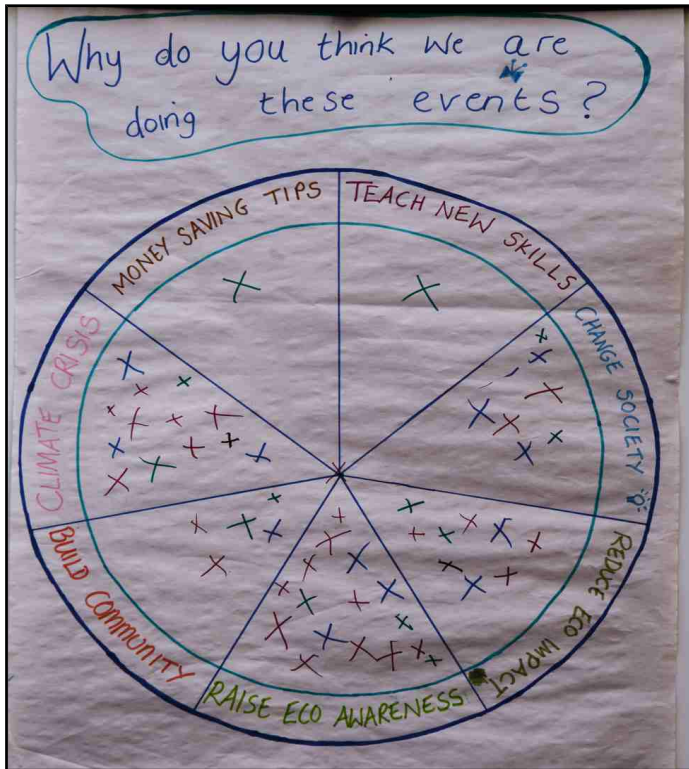 Why do you think we are
doing these events?
MONEY SAVING TIPS
TEACH NEW SKILLS
CHANGE SOCIETY
REDUCE ECO IMPACT
RAISE ECO AWARENESS
BUILD COMMUNITY
CLIMATE CRISIS